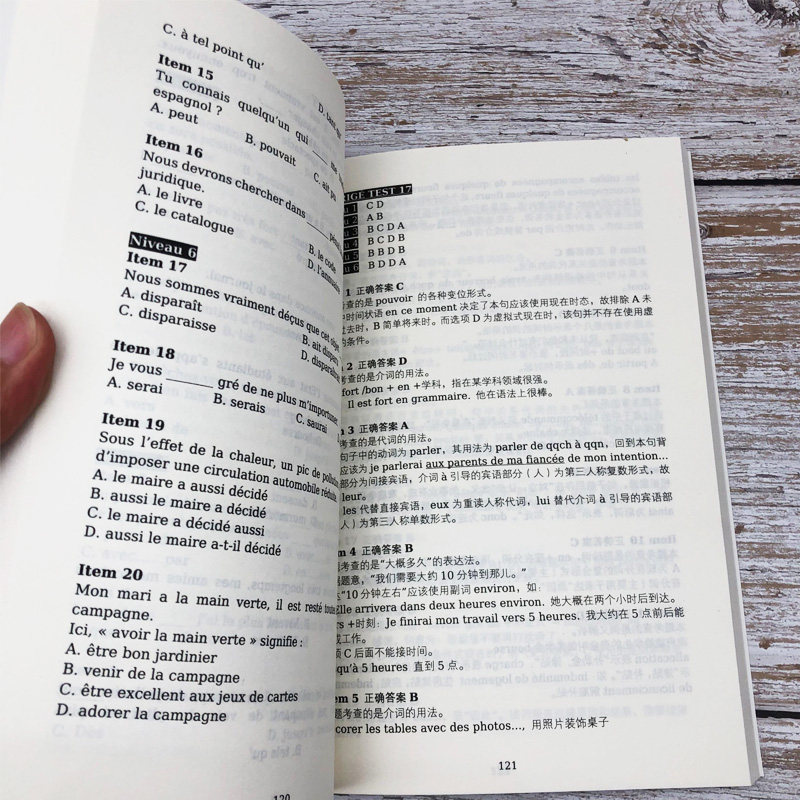 C. à tel point qu'
Item 15
Tu connais quelqu'un qui ______
espagnol ?
A. peut
B. pouvait
C. ait pu
Item 16
Nous devrons chercher dans ______
juridique.
A. le livre
B. le code
C. le catalogue
D. l'annuaire
Niveau 6
Item 17
Nous sommes vraiment déçus que cet
A. disparaît
B. ait disparu
C. disparaisse
Item 18
Je vous ______ gré de ne plus m'importuner
A. serai
B. serais
C. saurai
Item 19
Sous l'effet de la chaleur, un pic de
d'imposer une circulation automobile
A. le maire a aussi décidé
B. aussi le maire a décidé
C. le maire a décidé aussi
D. aussi le maire a-t-il décidé
Item 20
Mon mari a la main verte, il est resté
campagne.
Ici, « avoir la main verte » signifie :
A. être bon jardinier
B. venir de la campagne
C. être excellent aux jeux de cartes
D. adorer la campagne
120
RIGE TEST 17
1 C D
2 A B
3 B C D A
4 B C D B
5 B B D B
6 B D D A
1 正确答案 C
考查的是 pouvoir 的各种变位形式。
中时间状语 en ce moment 决定了本句应该使用现在时态，故排除 A 未
过去时，B 简单将来时。而选项 D 为虚拟式现在时，该句并不存在使用虚
的条件。
2 正确答案 D
考查的是介词的用法。
fort /bon + en +学科，指在某学科领域很强。
Il est fort en grammaire. 他在语法上很棒。
m 3 正确答案 A
考查的是代词的用法。
句子中的动词为 parler，其用法为 parler de qqch à qqn，回到本句背
应该为 je parlerai aux parents de ma fiancée de mon intention…
部分为间接宾语，介词 à 引导的宾语部分（人）为第三人称复数形式，故
leur。
les 代替直接宾语，eux 为重读人称代词，lui 替代介词 à 引导的宾语部
（人）为第三人称单数形式。
m 4 正确答案 B
考查的是“大概多久”的表达法。
题意，“我们需要大约 10 分钟到那儿。”
“10 分钟左右”应该使用副词 environ，如：
Elle arrivera dans deux heures environ. 她大概在两个小时后到达。
rs +时刻：Je finirai mon travail vers 5 heures. 我大约在 5 点前后能
成工作。
项 C 后面不能接时间。
qu'à 5 heures 直到 5 点。
em 5 正确答案 B
题考查的是介词的用法。
corer les tables avec des photos…, 用照片装饰桌子
121